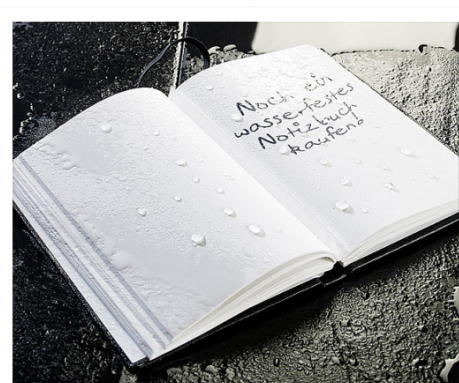 Noch ein
wasserfestes
Notizbuch
kaufen!